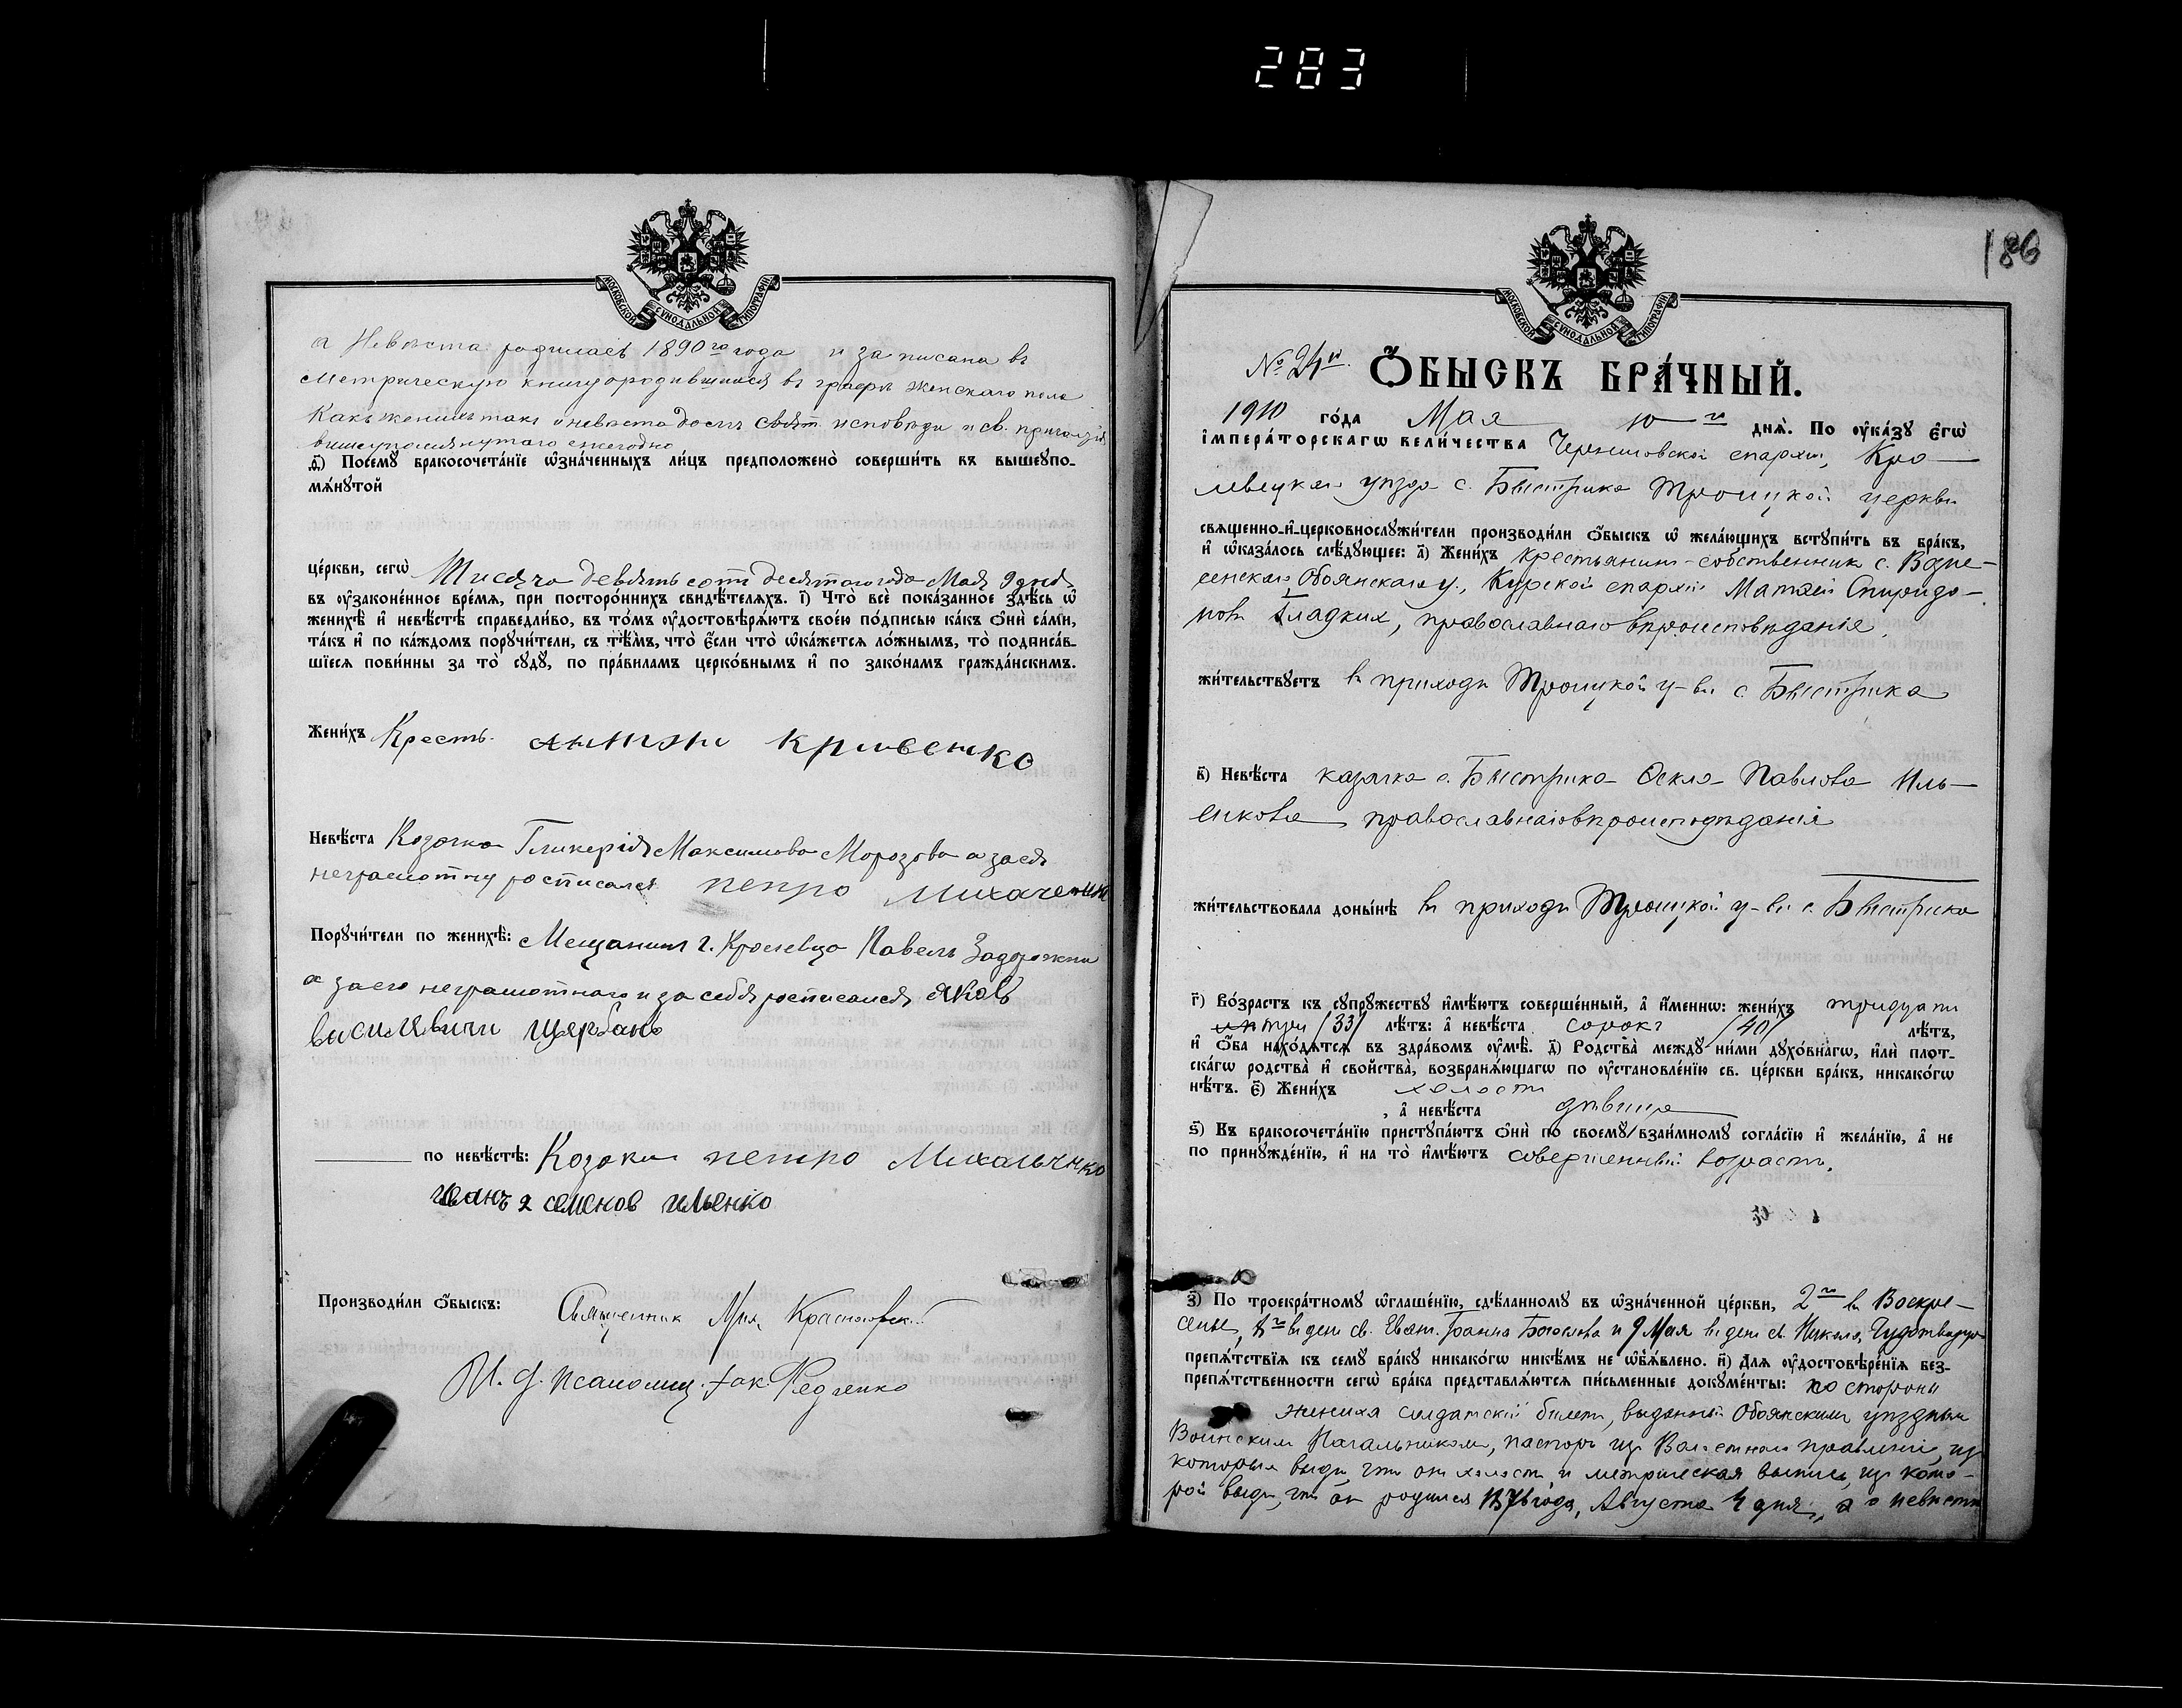 283
186
МОСКОВСКОЙ СѴНОДАЛЬНОЙ ТИПОГРАФІИ
а Невѣста родилась 1890го года и записана въ
Метрическую книгу о родившихся въ графѣ женскаго пола
Какъ женихъ такъ и невѣста были исповѣди и св.
вышеупомянутаго ежегодно
д҃і) Посемꙋ̀ бракосочета́нїе ѡ҆зна́ченныхъ ли́цъ предположено̀ соверши́ть въ вышеꙋпо-
мѧ́нꙋтой
це́ркви, сегѡ̀ Тисяча девять сотъ десятаго года Мая 9 дня
въ ᲂу҆зако́ненное вре́мѧ, при посторо́ннихъ свидѣ́телѧхъ. і҃) Что̀ всѐ пока́занное здѣ́сь ѡ҆
женихѣ̀ и҆ невѣ́стѣ справедли́во, въ то́мъ ᲂу҆достовѣрѧ́ютъ свое́ю по́дписью ка́къ ѻ҆нѝ са́ми,
та́къ и҆ по ка́ждомъ порꙋчи́тели, съ тѣ́мъ, что̀ є҆́сли что̀ ѡ҆ка́жетсѧ ло́жнымъ, то̀ подписа́в-
шїесѧ пови́нны за то̀ сꙋдꙋ̀, по пра́виламъ церко́внымъ и҆ по зако́намъ гражда́нскимъ.
Жени́хъ Крест. Кривенко
Невѣ́ста Козачка Гликерія Максимова Морозова а за ея
неграмотну росписался петро
Порꙋчи́тели по женихѣ̀: Мещанинъ г. Кролевца Павелъ
а за его неграмотнаго и за себя росписался яковъ
василевичъ щербакъ
по невѣ́стѣ: Козаки петро Михальченко
иванъ 2 семенов ильенко
Производи́ли ѻ҆́быскъ: Священник
И. д. псаломщ. Іак. Федченко
МОСКОВСКОЙ СѴНОДАЛЬНОЙ ТИПОГРАФІИ
№ 24й. Ѻ҆́БЫСКЪ БРА́ЧНЫЙ.
1910 го́да Мая 10го днѧ̀. По ᲂу҆ка́зꙋ є҆гѡ̀
і҆мпера́торскагѡ вели́чества Черниговской епархіи, Кро-
левецкаго уѣзда с. Быстрика Троицкой церкви
свѧще́нно-и҆-церковнослꙋжи́тели производи́ли ѻ҆́быскъ ѡ҆ жела́ющихъ встꙋпи́ть въ бра́къ,
и҆ ѡ҆каза́лось слѣ́дꙋющее: а҃) Жени́хъ крестьянин-собственник с. Возне-
сенскаго Обоянскаго у., Курской епархіи Матѳей Спиридо-
новъ Гладких, православнаго вѣроисповѣданія.
жи́тельствꙋетъ въ приходѣ Троицкой ц-ви с. Быстрика
в҃) Невѣ́ста казачка с. Быстрика Ѳекла Павлова Иль-
енкова православнаго вѣроисповѣданія
жи́тельствовала доны́нѣ въ приходѣ Троицкой ц-ви с. Быстрика
г҃) Во́зрастъ къ сꙋпрꙋ́жествꙋ и҆мѣ́ютъ соверше́нный, а҆ и҆́меннѡ: жени́хъ тридцати
три /33/ лѣ́тъ: а҆ невѣ́ста сорокъ /40/ лѣ́тъ,
и҆ ѻ҆́ба нахо́дѧтсѧ въ здра́вомъ ᲂу҆мѣ̀. д҃) Родства̀ междꙋ̀ ни́ми дꙋхо́внагѡ, и҆лѝ пло́т-
скагѡ родства̀ и҆ сво́йства̀, возбранѧ́ющагѡ по ᲂу҆становле́нїю св. це́ркви бра́къ, никако́гѡ
нѣ́тъ. є҃) Жени́хъ холостъ
, а҆ невѣ́ста дѣвица
ѕ҃) Къ бракосочета́нїю пристꙋпа́ютъ ѻ҆нѝ по своемꙋ̀ взаи́мномꙋ согла́сїю и҆ жела́нїю, а҆ не
по принꙋжде́нїю, и҆ на то̀ и҆мѣ́ютъ совершенный возрастъ.
з҃) По троекра́тномꙋ ѡ҆глаше́нїю, сдѣ́ланномꙋ въ ѡ҆зна́ченной це́ркви, 2го въ Воскре-
сенье, 8го въ день св. Еванг. Іоанна Богослова и 9 Мая въ день св. Никол. Чудотворца
препѧ́тствїѧ къ семꙋ̀ бра́кꙋ никако́гѡ никѣ́мъ не ѡ҆б̾ѧ́влено. и҃) Длѧ ᲂу҆достовѣре́нїѧ без-
препѧ́тственности сегѡ̀ бра́ка представлѧ́ютсѧ пи́сьменные докꙋме́нты: по стороны
жениха солдатскій билетъ, выданный Обоянским уѣздным
Воинским Начальником, паспорт из Волостного правленія, из
которых видно, что он холост и метрическая выпись, из кото-
рой видно, что он родился 1876 года, Августа 4 дня, а о невѣсте